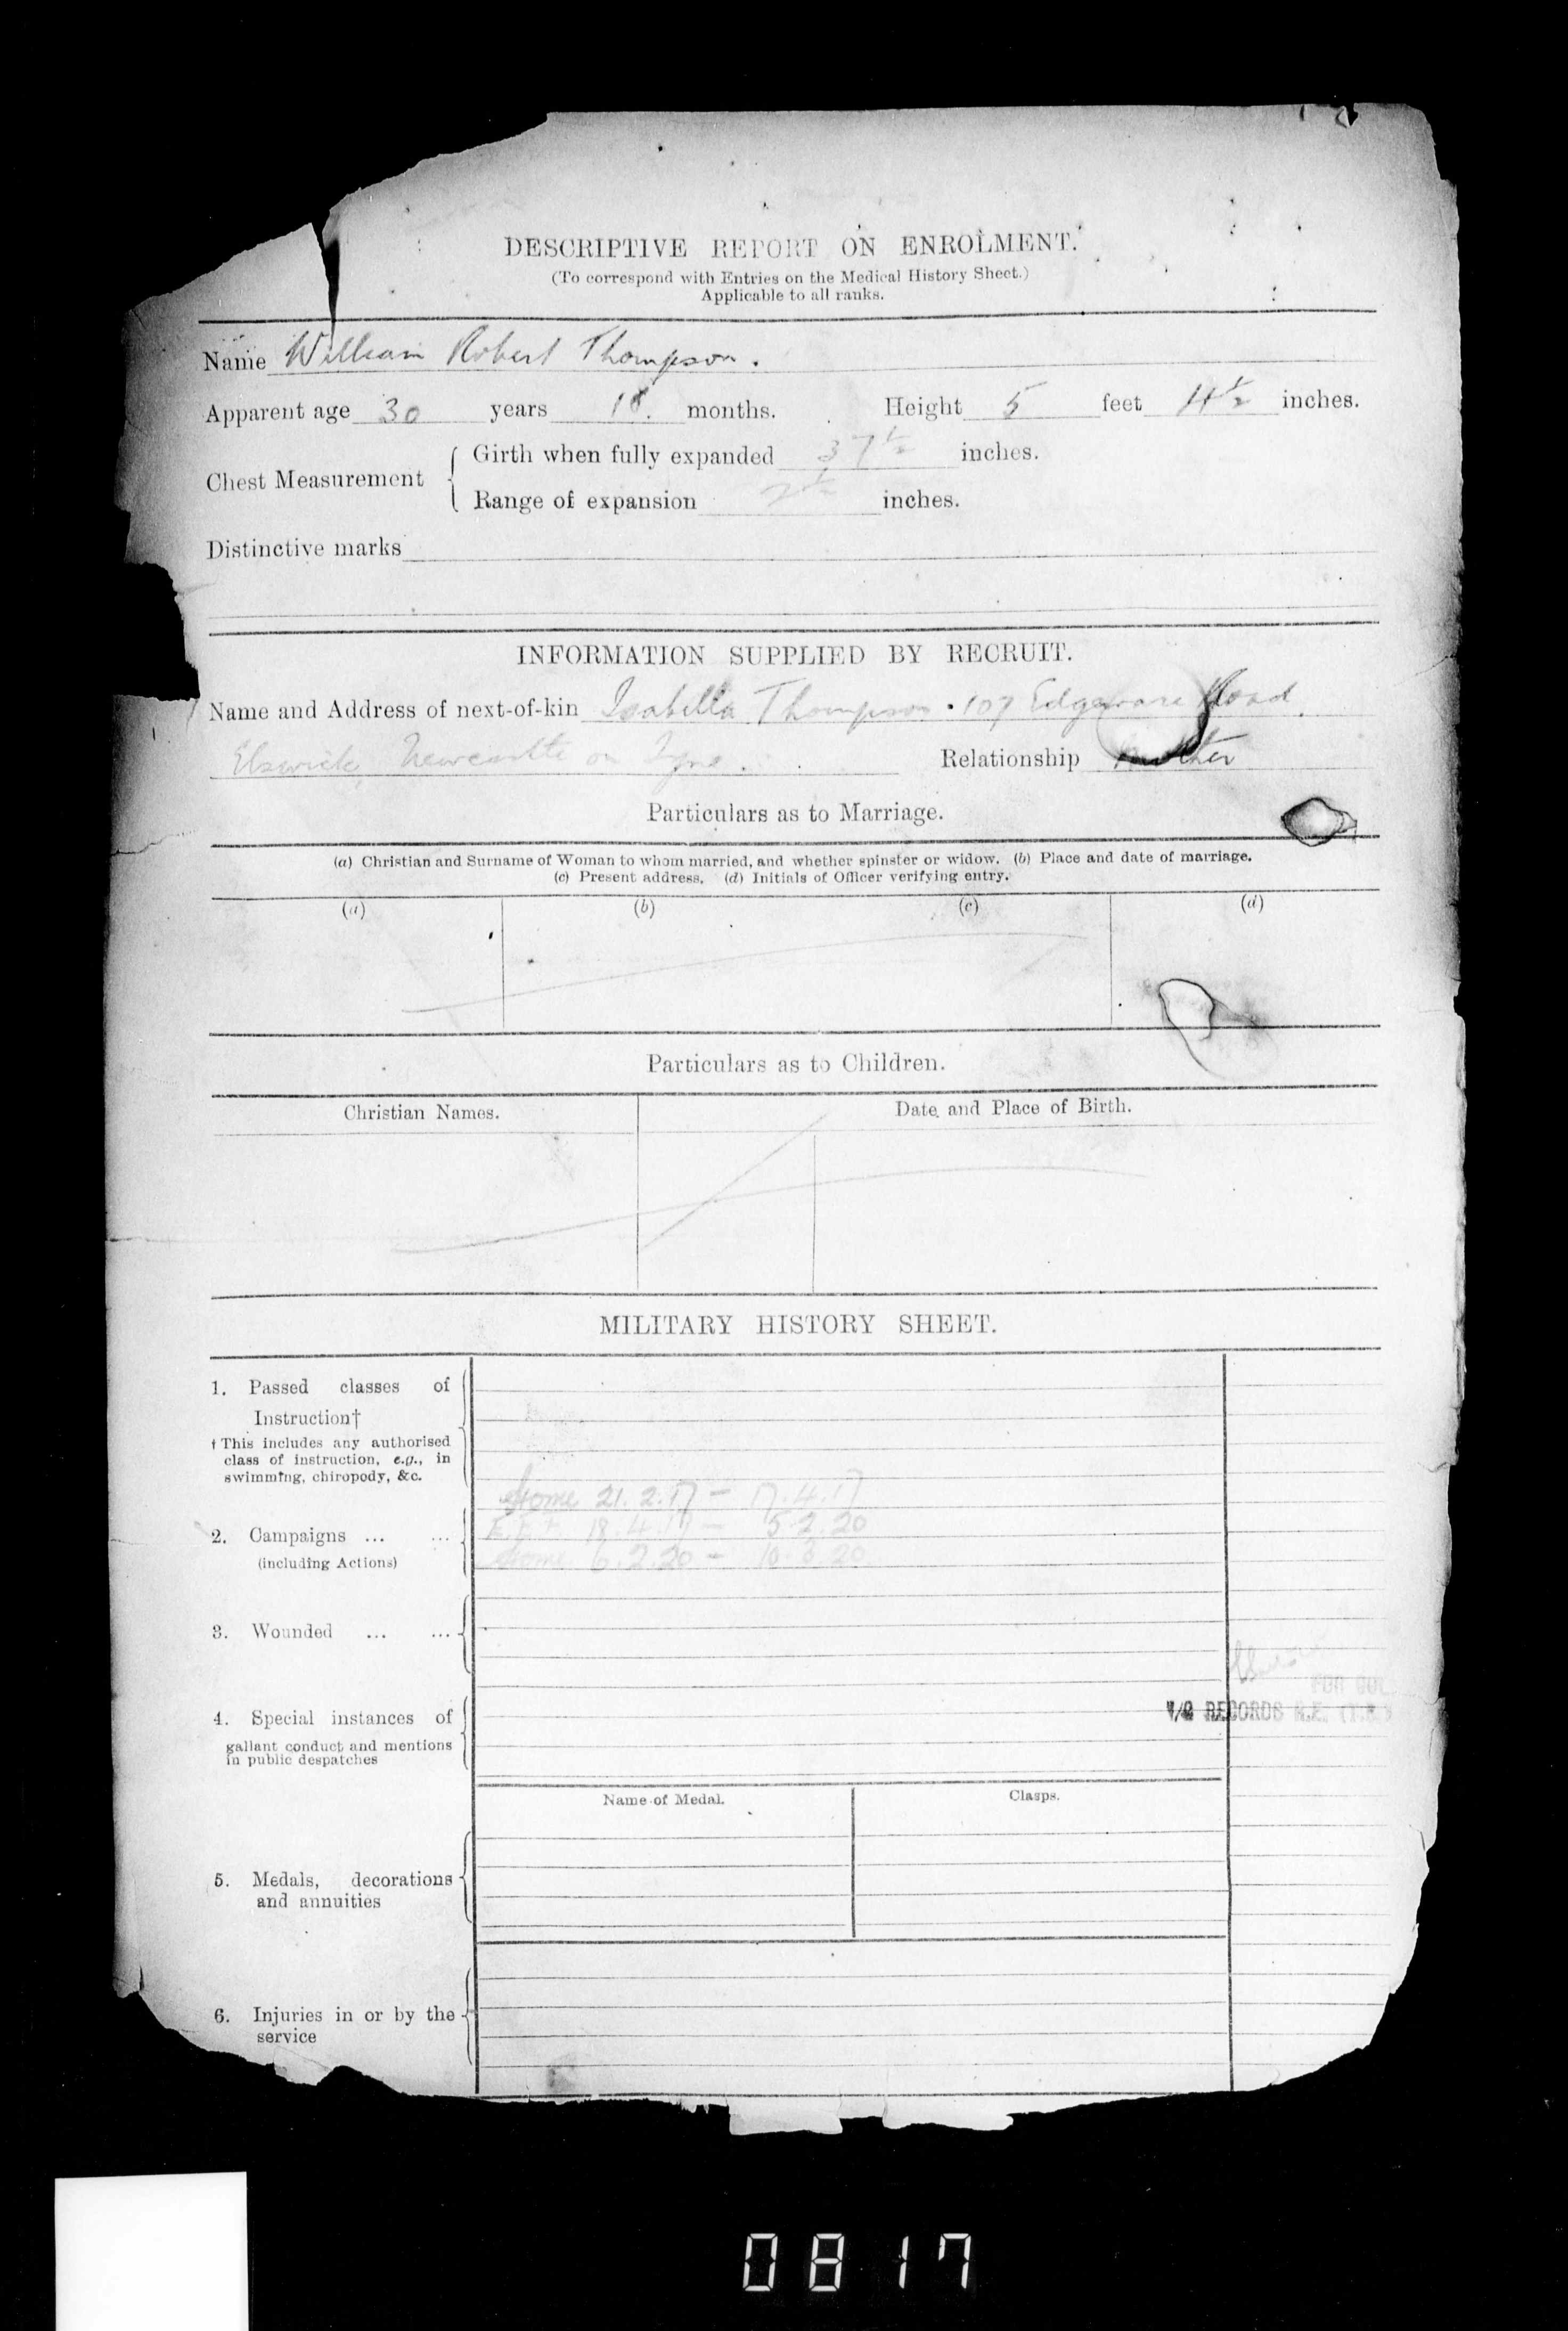 DESCRIPTIVE REPORT ON ENROLMENT.
(To correspond with Entries on the Medical History Sheet.)
Applicable to all ranks.
Name William Robert Thompson.
Apparent age 30 years months. Height 5 feet 4½ inches.
Chest Measurement { Girth when fully expanded 37½ inches.
Range of expansion 2½ inches.
Distinctive marks
INFORMATION SUPPLIED BY RECRUIT.
Name and Address of next-of-kin Isabella Thompson. 107 Edgeware Road.
Elswick Newcastle on Tyne. Relationship
Particulars as to Marriage.
(a) Christian and Surname of Woman to whom married, and whether spinster or widow. (b) Place and date of marriage.
(c) Present address. (d) Initials of Officer verifying entry.
(a) (b) (c) (d)
Particulars as to Children.
Christian Names. Date and Place of Birth.
MILITARY HISTORY SHEET.
1. Passed classes of
Instruction†
† This includes any authorised
class of instruction, e.g., in
swimming, chiropody, &c.
Home 21.2.17 - 17.4.17
18.4.17 - 5.2.20
2. Campaigns ... ...
Home 6.2.20 - 10.3.20
(including Actions)
3. Wounded ... ...
4. Special instances of
gallant conduct and mentions
in public despatches
RECORDS R.E.
Name of Medal. Clasps.
5. Medals, decorations
and annuities
6. Injuries in or by the
service
0817